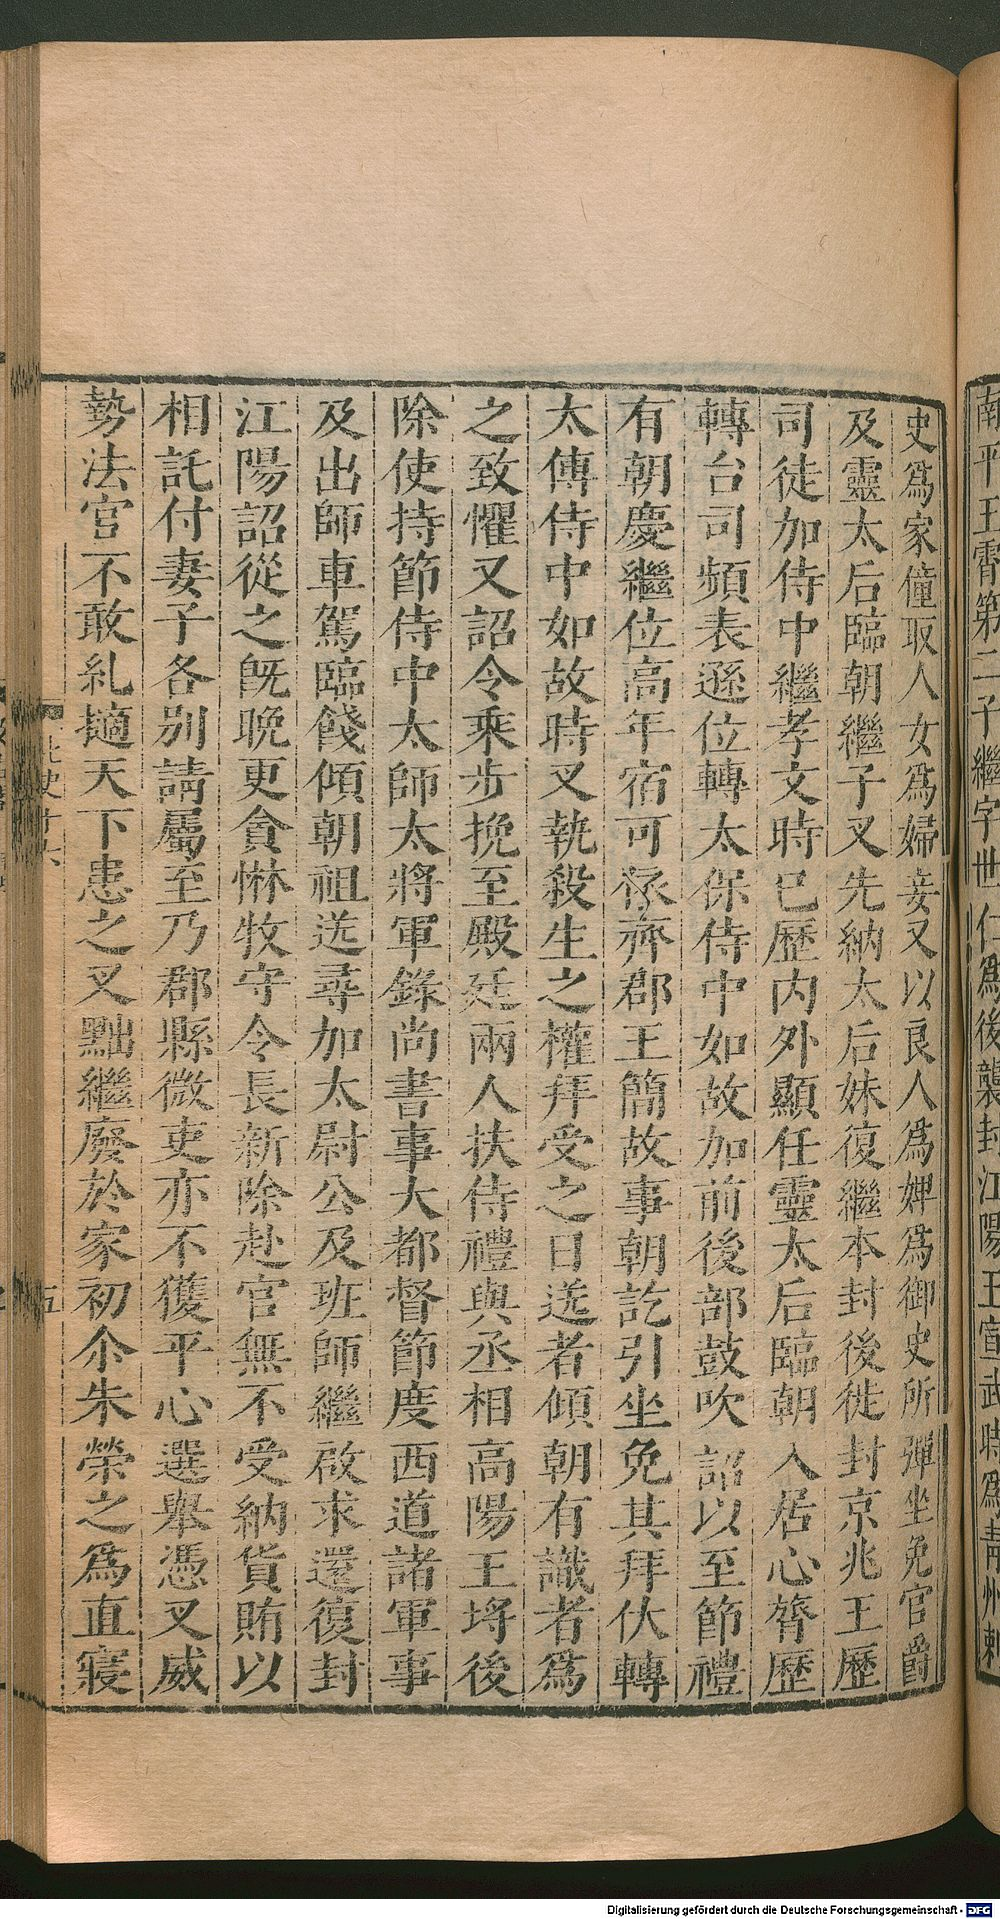 南平王霄第二子繼字世仁爲後襲封江陽王宣武時爲青州刺
史爲家僮取人女爲婦妾又以良人爲婢爲御史所彈坐免官爵
及靈太后臨朝繼子叉先納太后妹復繼本封後徙封京兆王歷
司徒加侍中繼孝文時已歷内外顯任靈太后臨朝入居心膂歷
轉台司頻表遜位轉太保侍中如故加前後部鼓吹詔以至節禮
有朝慶繼位高年宿可依齊郡王簡故事朝訖引坐免其拜伏轉
太傅侍中如故時叉執殺生之權拜受之日送者傾朝有識者爲
之致懼又詔令乘步挽至殿廷兩人扶侍禮與丞相高陽王埒後
除使持節侍中太師太將軍錄尚書事大都督節度西道諸軍事
及出師車駕臨餞傾朝祖送尋加太尉公及班師繼啟求還復封
江陽詔從之既晩更貪惏牧守令長新除赴官無不受納貨賄以
相託付妻子各别請屬至乃郡縣微吏亦不獲平心選舉憑叉威
勢法官不敢糺擿天下患之叉黜繼廢於家初尒朱榮之爲直寢
北史十六
五
Digitalisierung gefördert durch die Deutsche Forschungsgemeinschaft - DFG